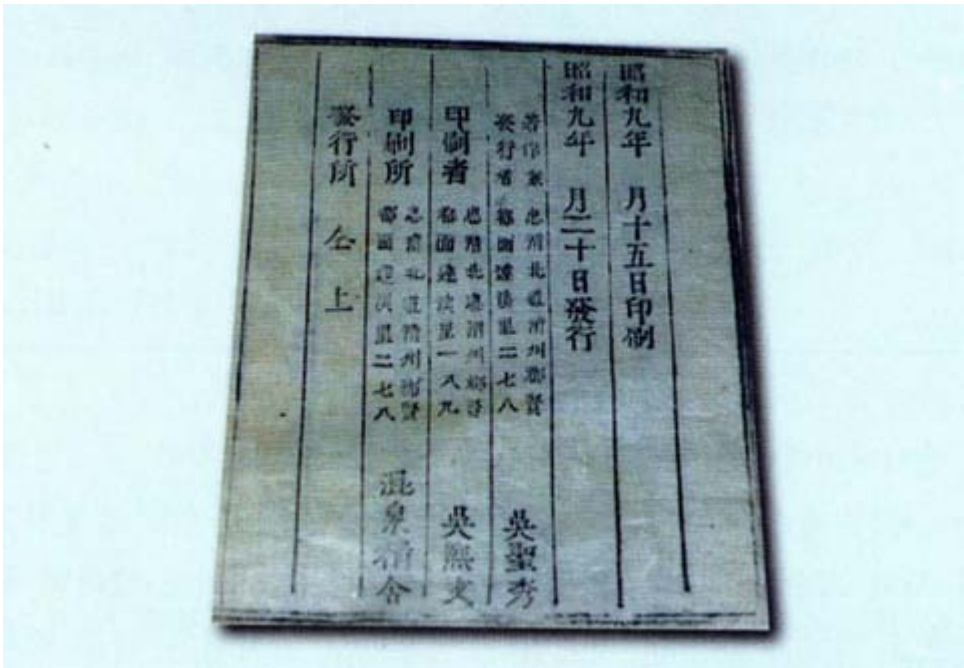 昭和九年 月十五日印刷
昭和九年 月二十日發行
著作兼
發行者
忠淸北道淸州郡賢
都面達溪里二七八
吳聖秀
印刷者
忠淸北道淸州郡賢
都面達溪里一八九
吳熙文
印刷所
忠淸北道淸州郡賢
都面達溪里二七八
混泉精舍
發行所 仝上